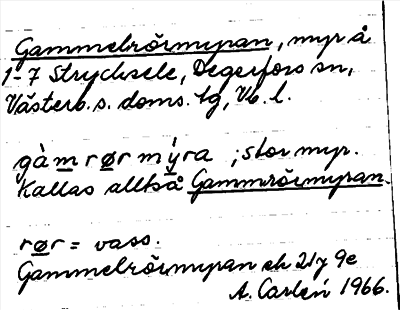 Gammelrörmyran, myr å
1-7 Strycksele, Degerfors sn,
Västerb. s. doms. tg, Vb. l.
gàmrørmýra ; stor myr.
Kallas alltså Gammrörmyran.
rør = vass.
Gammelrörmyran ek 21y 9e
A. Carlén 1966.